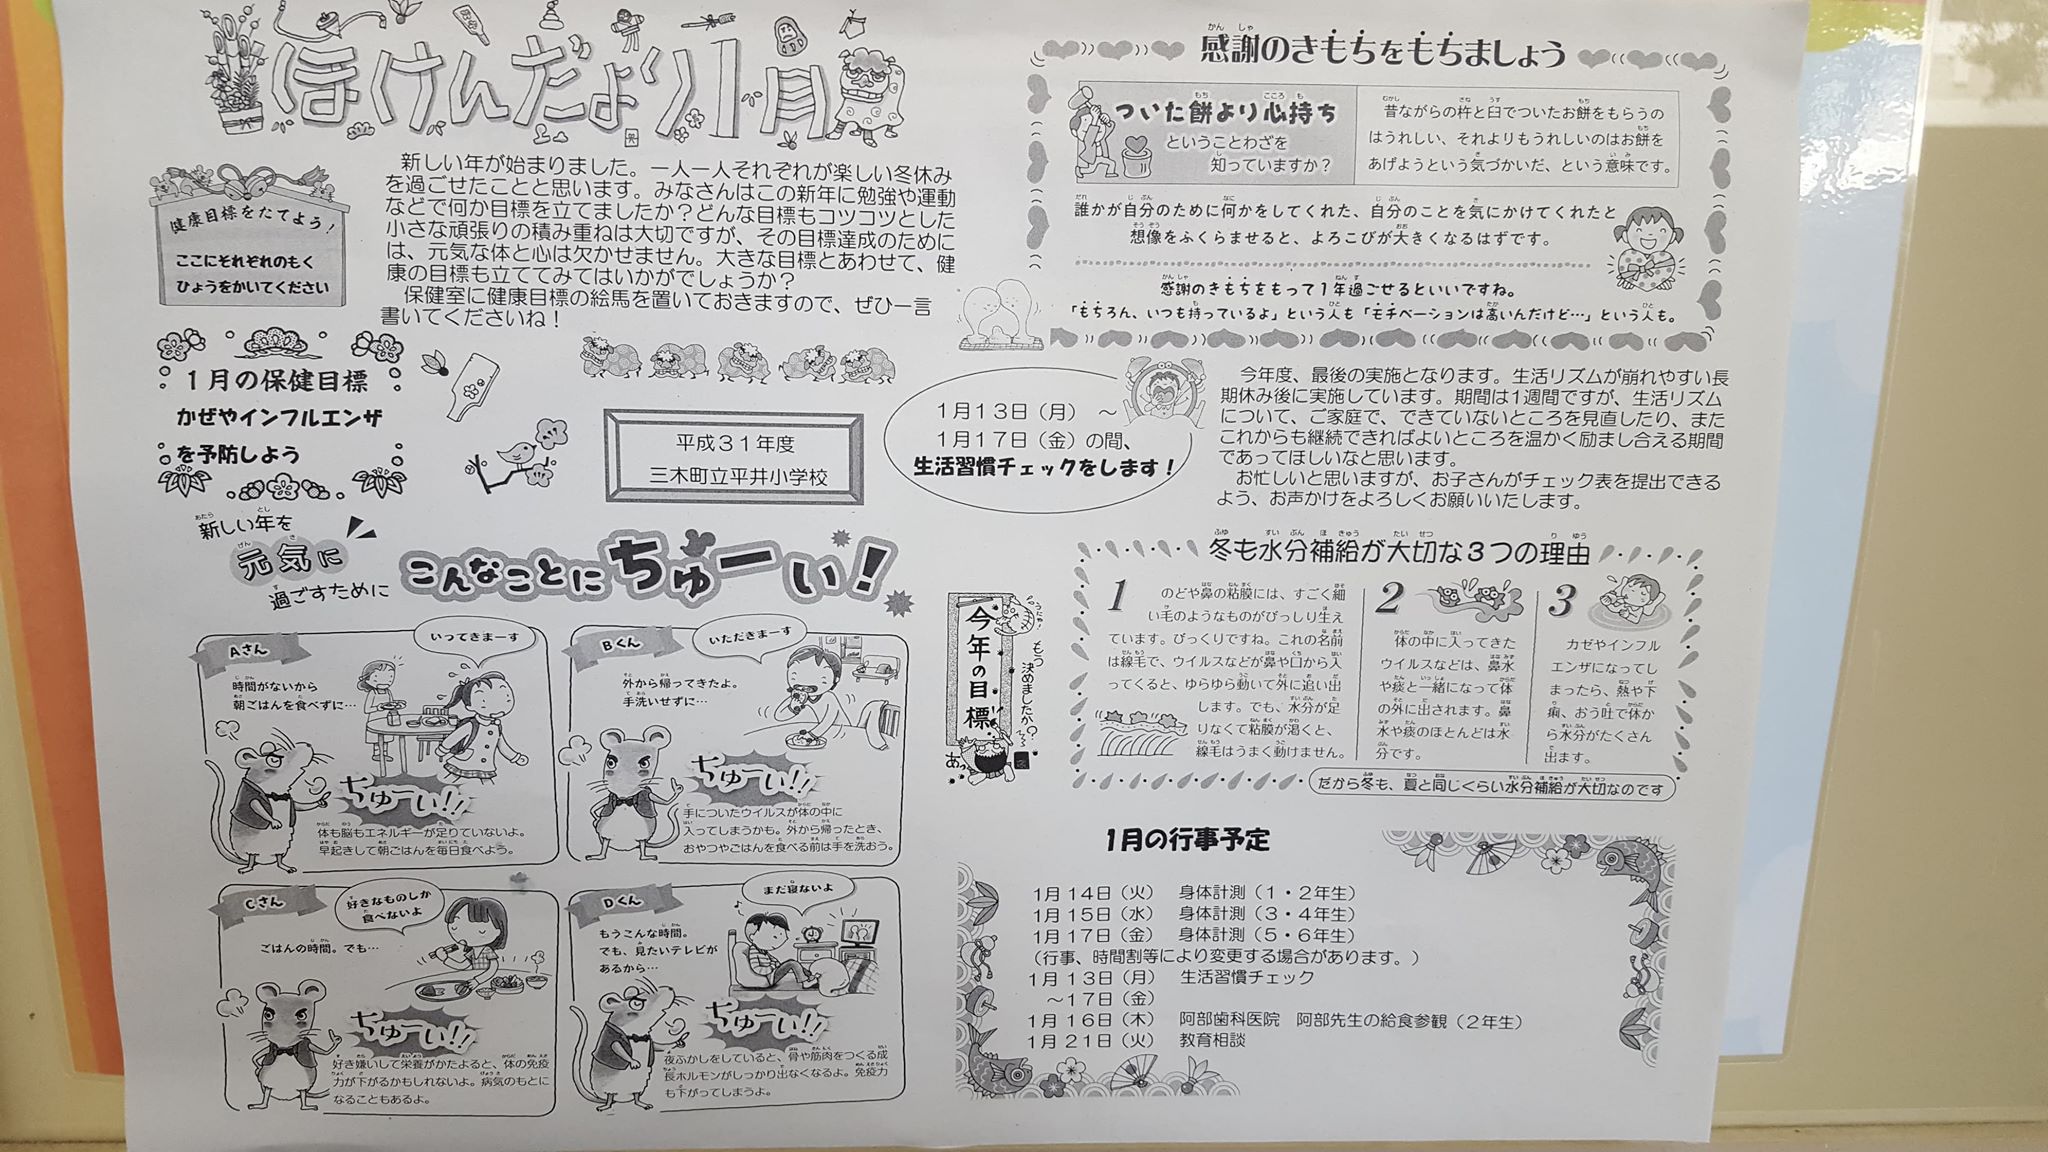 ほけんだより1月
新しい年が始まりました。一人一人それぞれが楽しい冬休み
を過ごせたことと思います。みなさんはこの新年に勉強や運動
などで何か目標を立てましたか？どんな目標もコツコツとした
小さな頑張りの積み重ねは大切ですが、その目標達成のために
は、元気な体と心は欠かせません。大きな目標とあわせて、健
康の目標も立ててみてはいかがでしょうか？
保健室に健康目標の絵馬を置いておきますので、ぜひ一言
書いてくださいね！
健康目標をたてよう！
ここにそれぞれのもく
ひょうをかいてください
1月の保健目標
かぜやインフルエンザ
を予防しよう
平成31年度
三木町立平井小学校
感謝のきもちをもちましょう
ついた餅より心持ち
ということわざを
知っていますか？
昔ながらの杵と臼でついたお餅をもらうの
はうれしい、それよりもうれしいのはお餅を
あげようという気づかいだ、という意味です。
誰かが自分のために何かをしてくれた、自分のことを気にかけてくれたと
想像をふくらませると、よろこびが大きくなるはずです。
感謝のきもちをもって1年過ごせるといいですね。
「もちろん、いつも持っているよ」という人も「モチベーションは高いんだけど…」という人も。
1月13日（月）～
1月17日（金）の間、
生活習慣チェックをします！
今年度、最後の実施となります。生活リズムが崩れやすい長
期休み後に実施しています。期間は1週間ですが、生活リズム
について、ご家庭で、できていないところを見直したり、また
これからも継続できればよいところを温かく励まし合える期間
であってほしいなと思います。
お忙しいと思いますが、お子さんがチェック表を提出できる
よう、お声かけをよろしくお願いいたします。
新しい年を
元気に
過ごすために
こんなことにちゅーい！
Aさん
いってきまーす
時間がないから
朝ごはんを食べずに…
ちゅーい!!
体も脳もエネルギーが足りていないよ。
早起きして朝ごはんを毎日食べよう。
Bくん
いただきまーす
外から帰ってきたよ。
手洗いせずに…
ちゅーい!!
手についたウイルスが体の中に
入ってしまうかも。外から帰ったとき、
おやつやごはんを食べる前は手を洗おう。
Cさん
好きなものしか
食べないよ
ごはんの時間。でも…
ちゅーい!!
好き嫌いして栄養がかたよると、体の免疫
力が下がるかもしれないよ。病気のもとに
なることもあるよ。
Dくん
まだ寝ないよ
もうこんな時間。
でも、見たいテレビが
あるから…
ちゅーい!!
夜ふかしをしていると、骨や筋肉をつくる成
長ホルモンがしっかり出なくなるよ。免疫力
も下がってしまうよ。
今年の目標
もう決めましたか？
冬も水分補給が大切な3つの理由
1
のどや鼻の粘膜には、すごく細
い毛のようなものがびっしり生え
ています。びっくりですね。これの名前
は線毛で、ウイルスなどが鼻や口から入
ってくると、ゆらゆら動いて外に追い出
します。でも、水分が足
りなくて粘膜が渇くと、
線毛はうまく動けません。
2
体の中に入ってきた
ウイルスなどは、鼻水
や痰と一緒になって体
の外に出されます。鼻
水や痰のほとんどは水
分です。
3
カゼやインフル
エンザになってし
まったら、熱や下
痢、おう吐で体か
ら水分がたくさん
出ます。
だから冬も、夏と同じくらい水分補給が大切なのです
1月の行事予定
1月14日（火） 身体計測（1・2年生）
1月15日（水） 身体計測（3・4年生）
1月17日（金） 身体計測（5・6年生）
（行事、時間割等により変更する場合があります。）
1月13日（月） 生活習慣チェック
～17日（金）
1月16日（木） 阿部歯科医院 阿部先生の給食参観（2年生）
1月21日（火） 教育相談